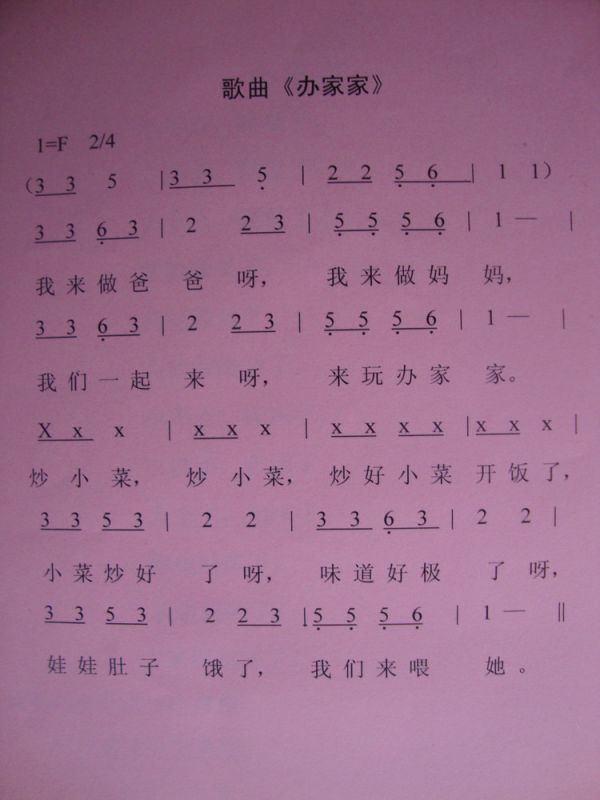 歌曲《办家家》
1=F 2/4
（3 3 5 | 3 3 5 | 2 2 5 6 | 1 1）
3 3 6 3 | 2 2 3 | 5 5 5 6 | 1 — |
我来做爸 爸 呀， 我来做妈 妈，
3 3 6 3 | 2 2 3 | 5 5 5 6 | 1 — |
我们一起 来 呀， 来玩办家 家。
X x x | x x x | x x x x | x x x |
炒小菜， 炒小菜， 炒好小菜 开饭了，
3 3 5 3 | 2 2 | 3 3 6 3 | 2 2 |
小菜炒好 了 呀， 味道好极 了 呀，
3 3 5 3 | 2 2 3 | 5 5 5 6 | 1 — ‖
娃娃肚子 饿了， 我们来喂 她。